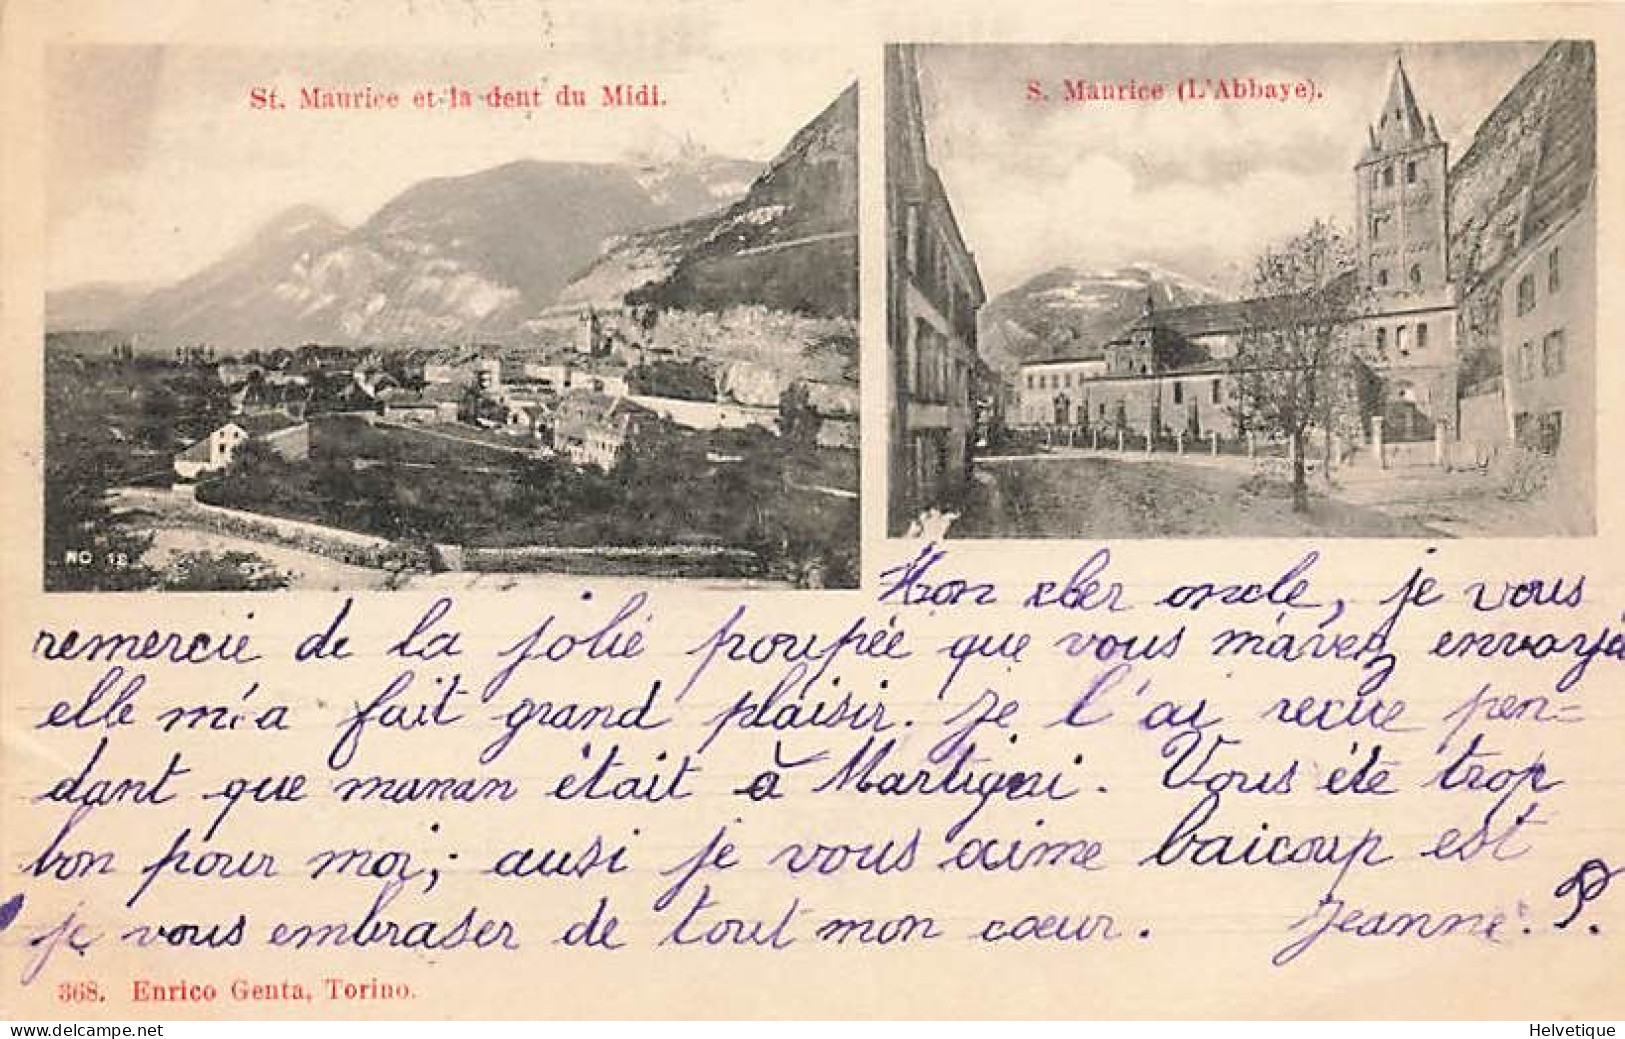 St. Maurice et la dent du Midi.
S. Maurice (L'Abbaye).
NO 18
Mon cher oncle, je vous
remercie de la jolie poupée que vous m'avez envoyé
elle m'a fait grand plaisir. Je l'ai recue pen=
dant que maman était à Martigni. Vous été trop
bon pour moi; ausi je vous aime baicoup est
je vous embraser de tout mon cœur. Jeanne. P.
368. Enrico Genta, Torino.
www.delcampe.net
Helvetique